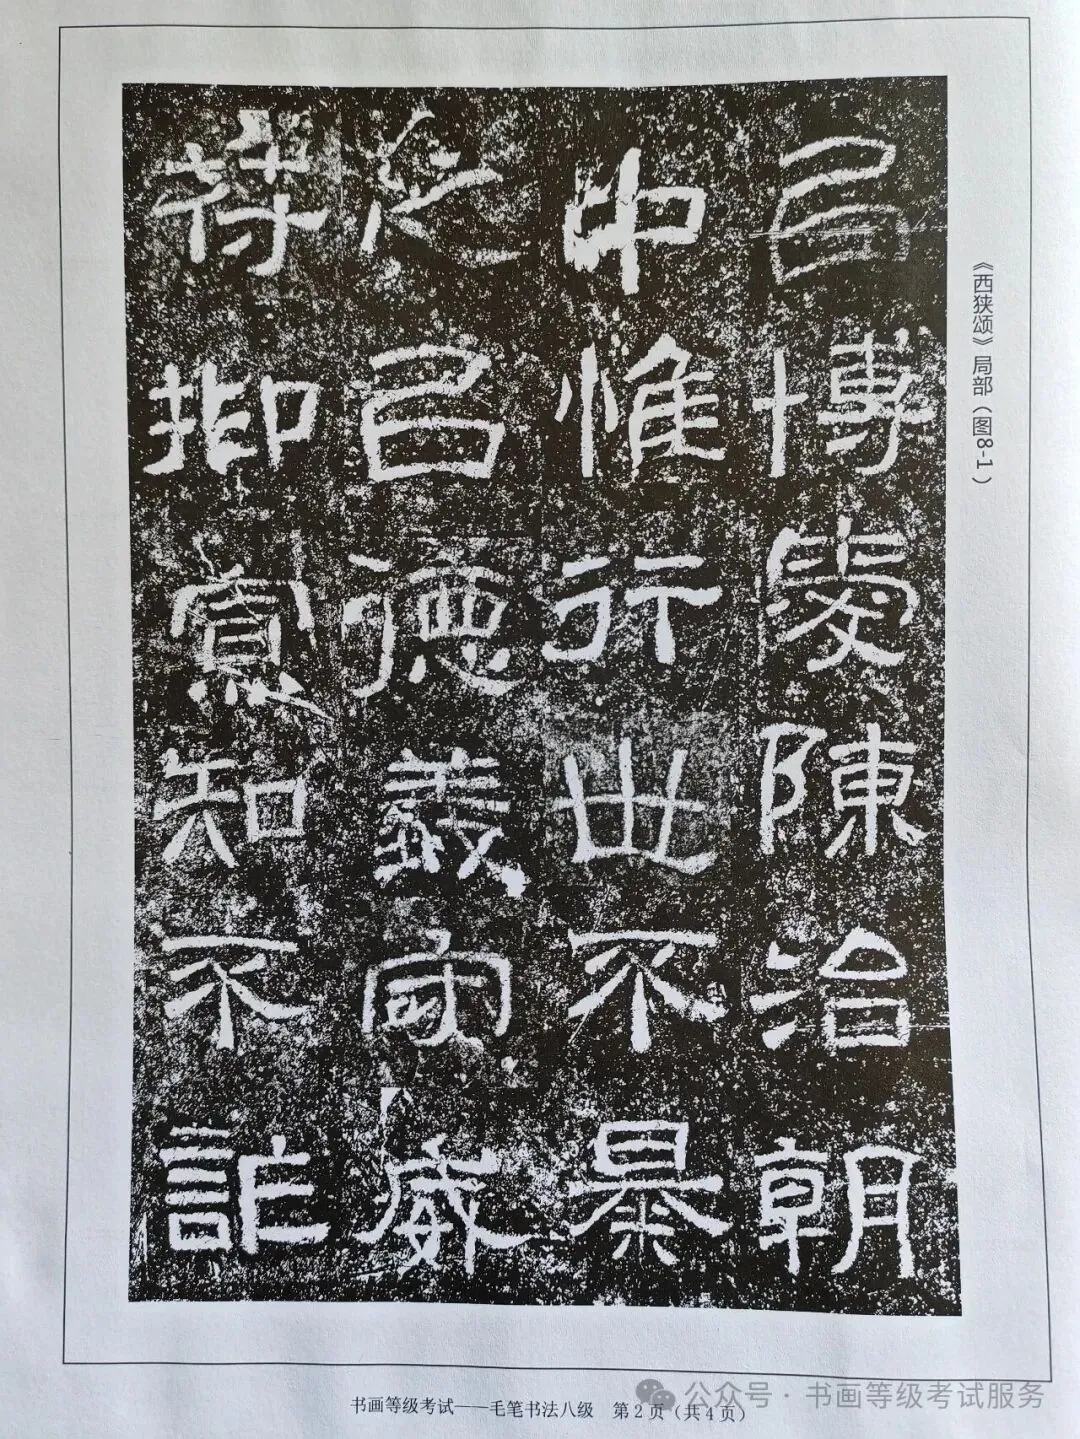 㠯博愛陳治朝
中惟行世不暴
之㠯德義而威
符抑寡知不詐
《西狭颂》局部（图8-1）
书画等级考试——毛笔书法八级 第2页（共4页）
公众号·书画等级考试服务